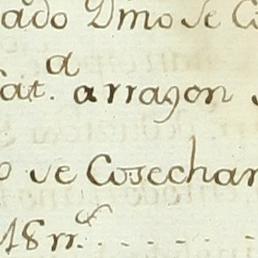 ado Dmo se Co
a
at. arragon
se Cosechan
18 rr.s